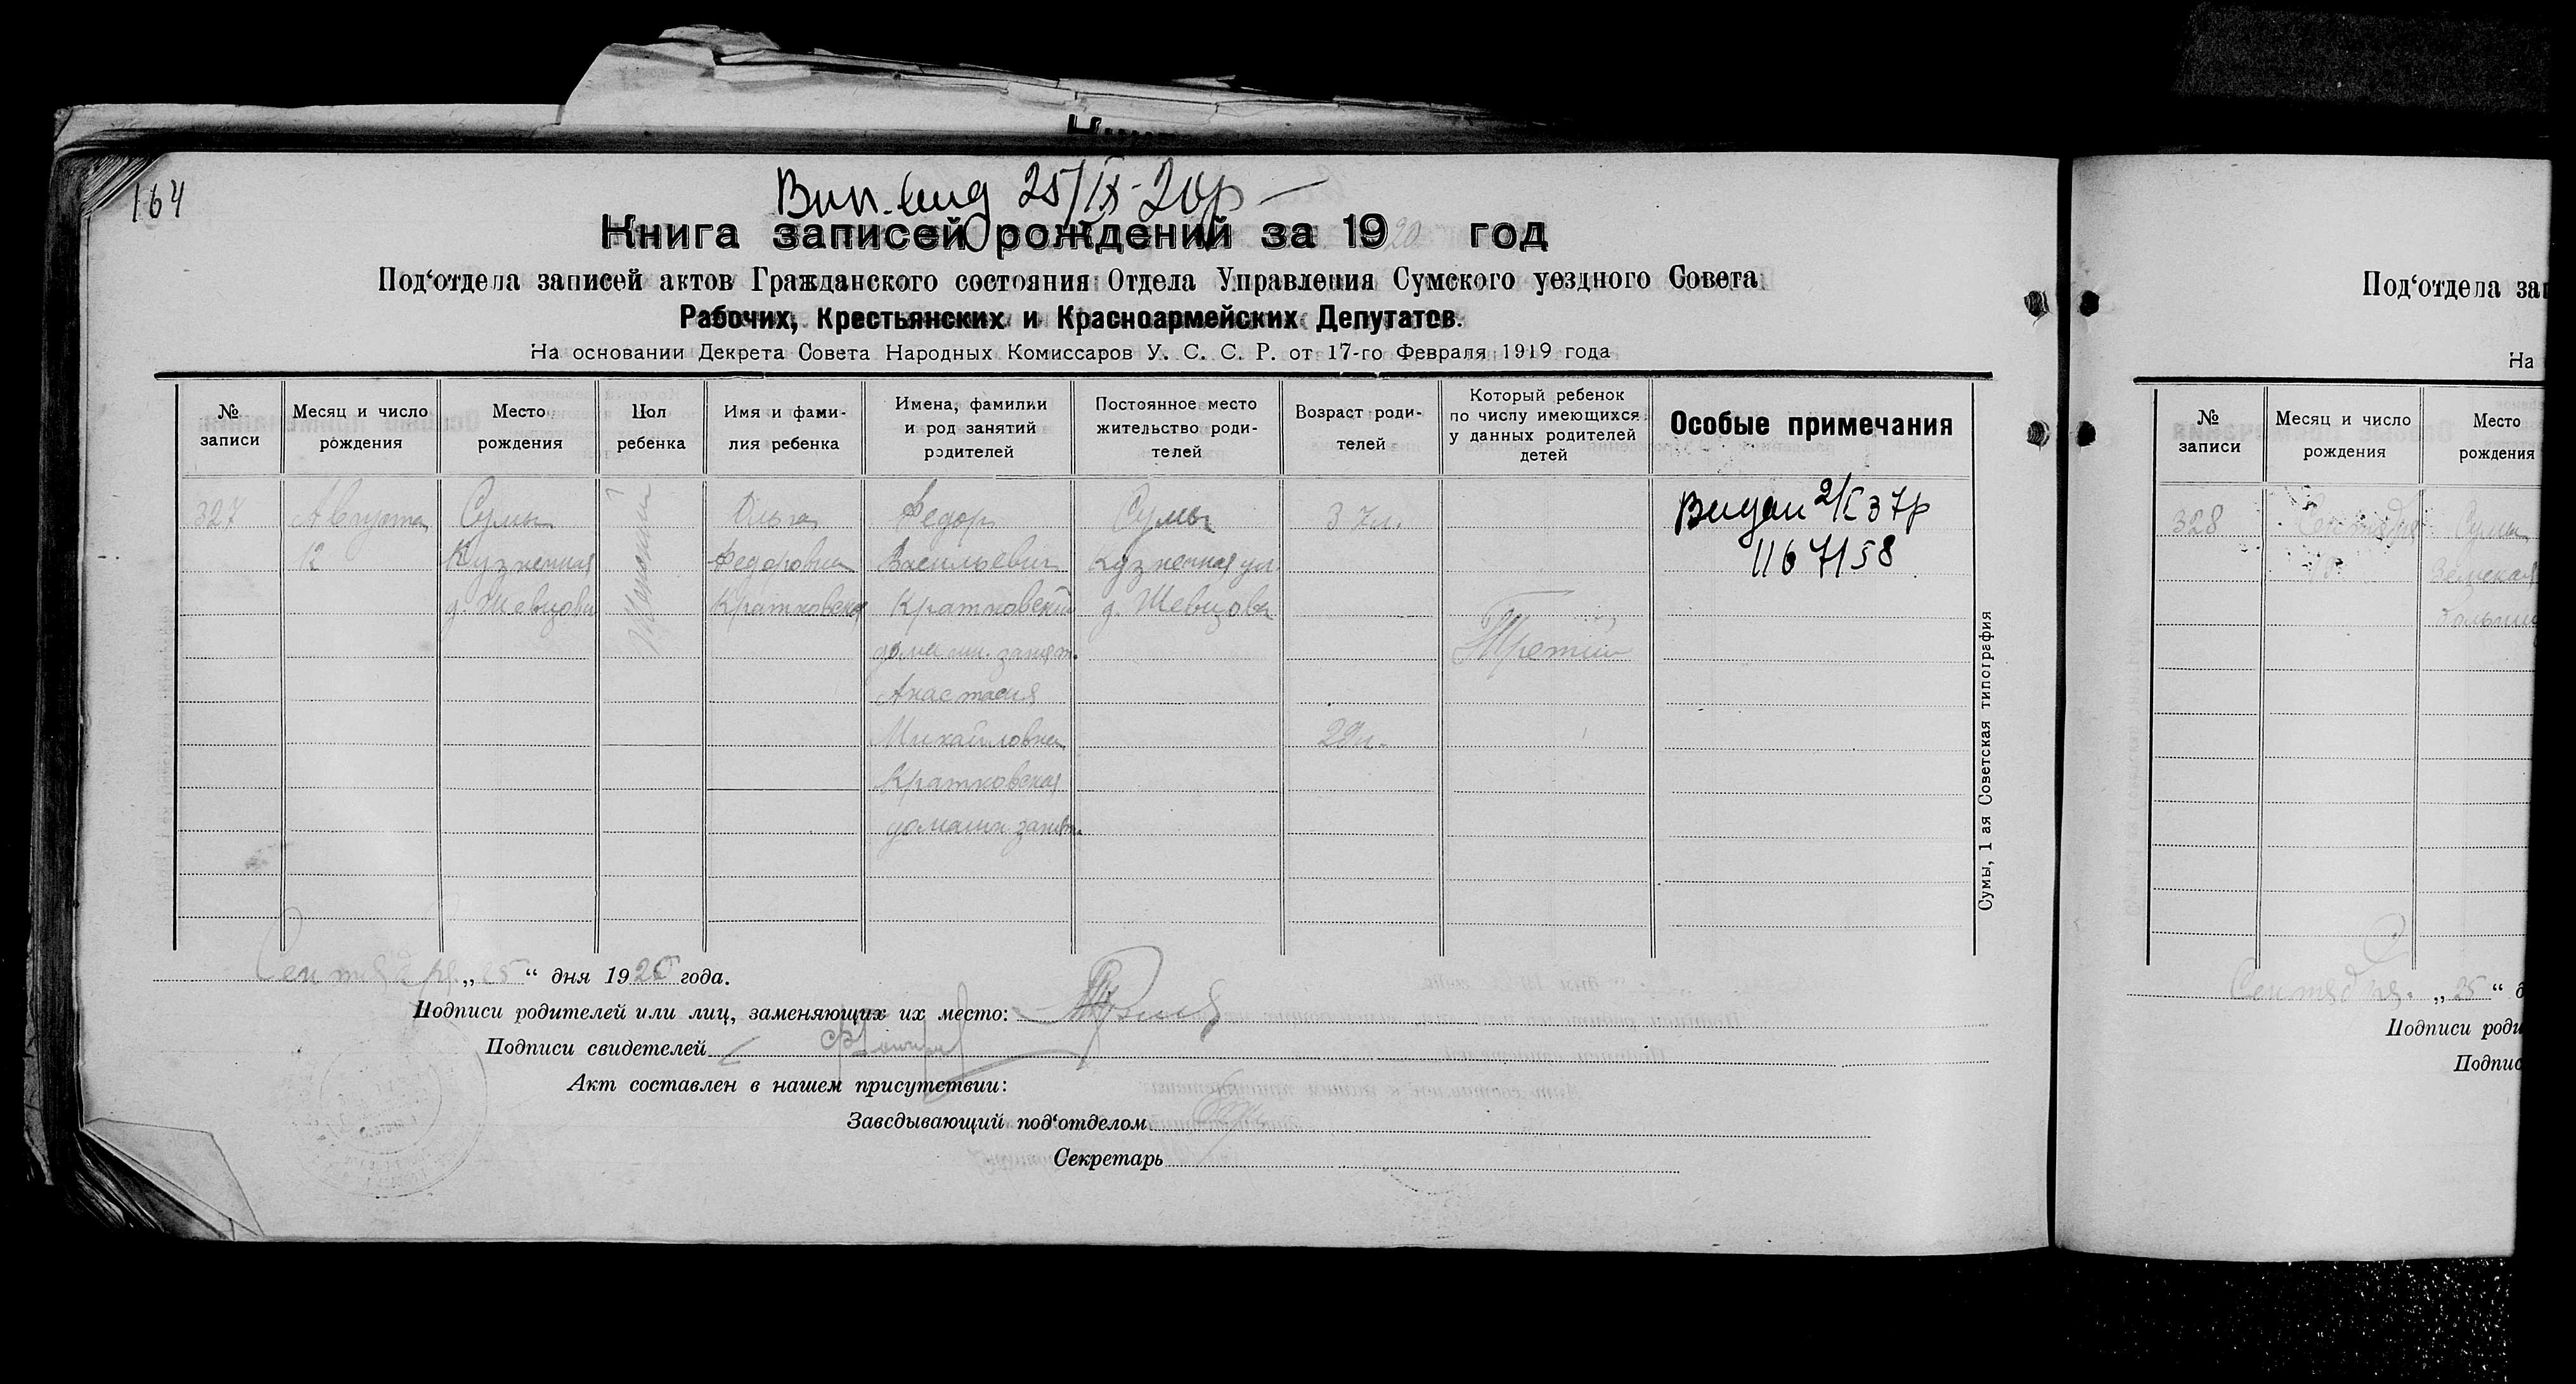 164
Вип. вид 25/IX-20р
Книга записей рождений за 1920 год
Под'отдела записей актов Гражданского состояния Отдела Управления Сумского уездного Совета
Рабочих, Крестьянских и Красноармейских Депутатов.
На основании Декрета Совета Народных Комиссаров У. С. С. Р. от 17-го Февраля 1919 года
№ записи
Месяц и число рождения
Место рождения
Пол ребенка
Имя и фамилия ребенка
Имена, фамилии и род занятий родителей
Постоянное место жительство родителей
Возраст родителей
Который ребенок по числу имеющихся у данных родителей детей
Особые примечания
327
Августа
12
Сумы
Кузнечная
д. Шевцова
Женский
Ольга
Федоровна
Кратковская
Федор
Васильевич
Кратковский
домашн. занят.
Анастасия
Михайловна
Кратковская
домашн. занят.
Сумы
Кузнечная ул.
д. Шевцова
37л.
29л.
Третий
Видан 2/I 37р
1167158
Сумы, 1 ая Советская типография
Сентября „25“ дня 1920 года.
Подписи родителей или лиц, заменяющих их место:
Подписи свидетелей
Акт составлен в нашем присутствии:
Заведывающий под'отделом
Секретарь
Под'отдела зап
На
№ записи
Месяц и число рождения
Место рождения
328
Сентября
Сумы
Земская
больниц
Сентября „25“ д
Подписи роди
Подпис